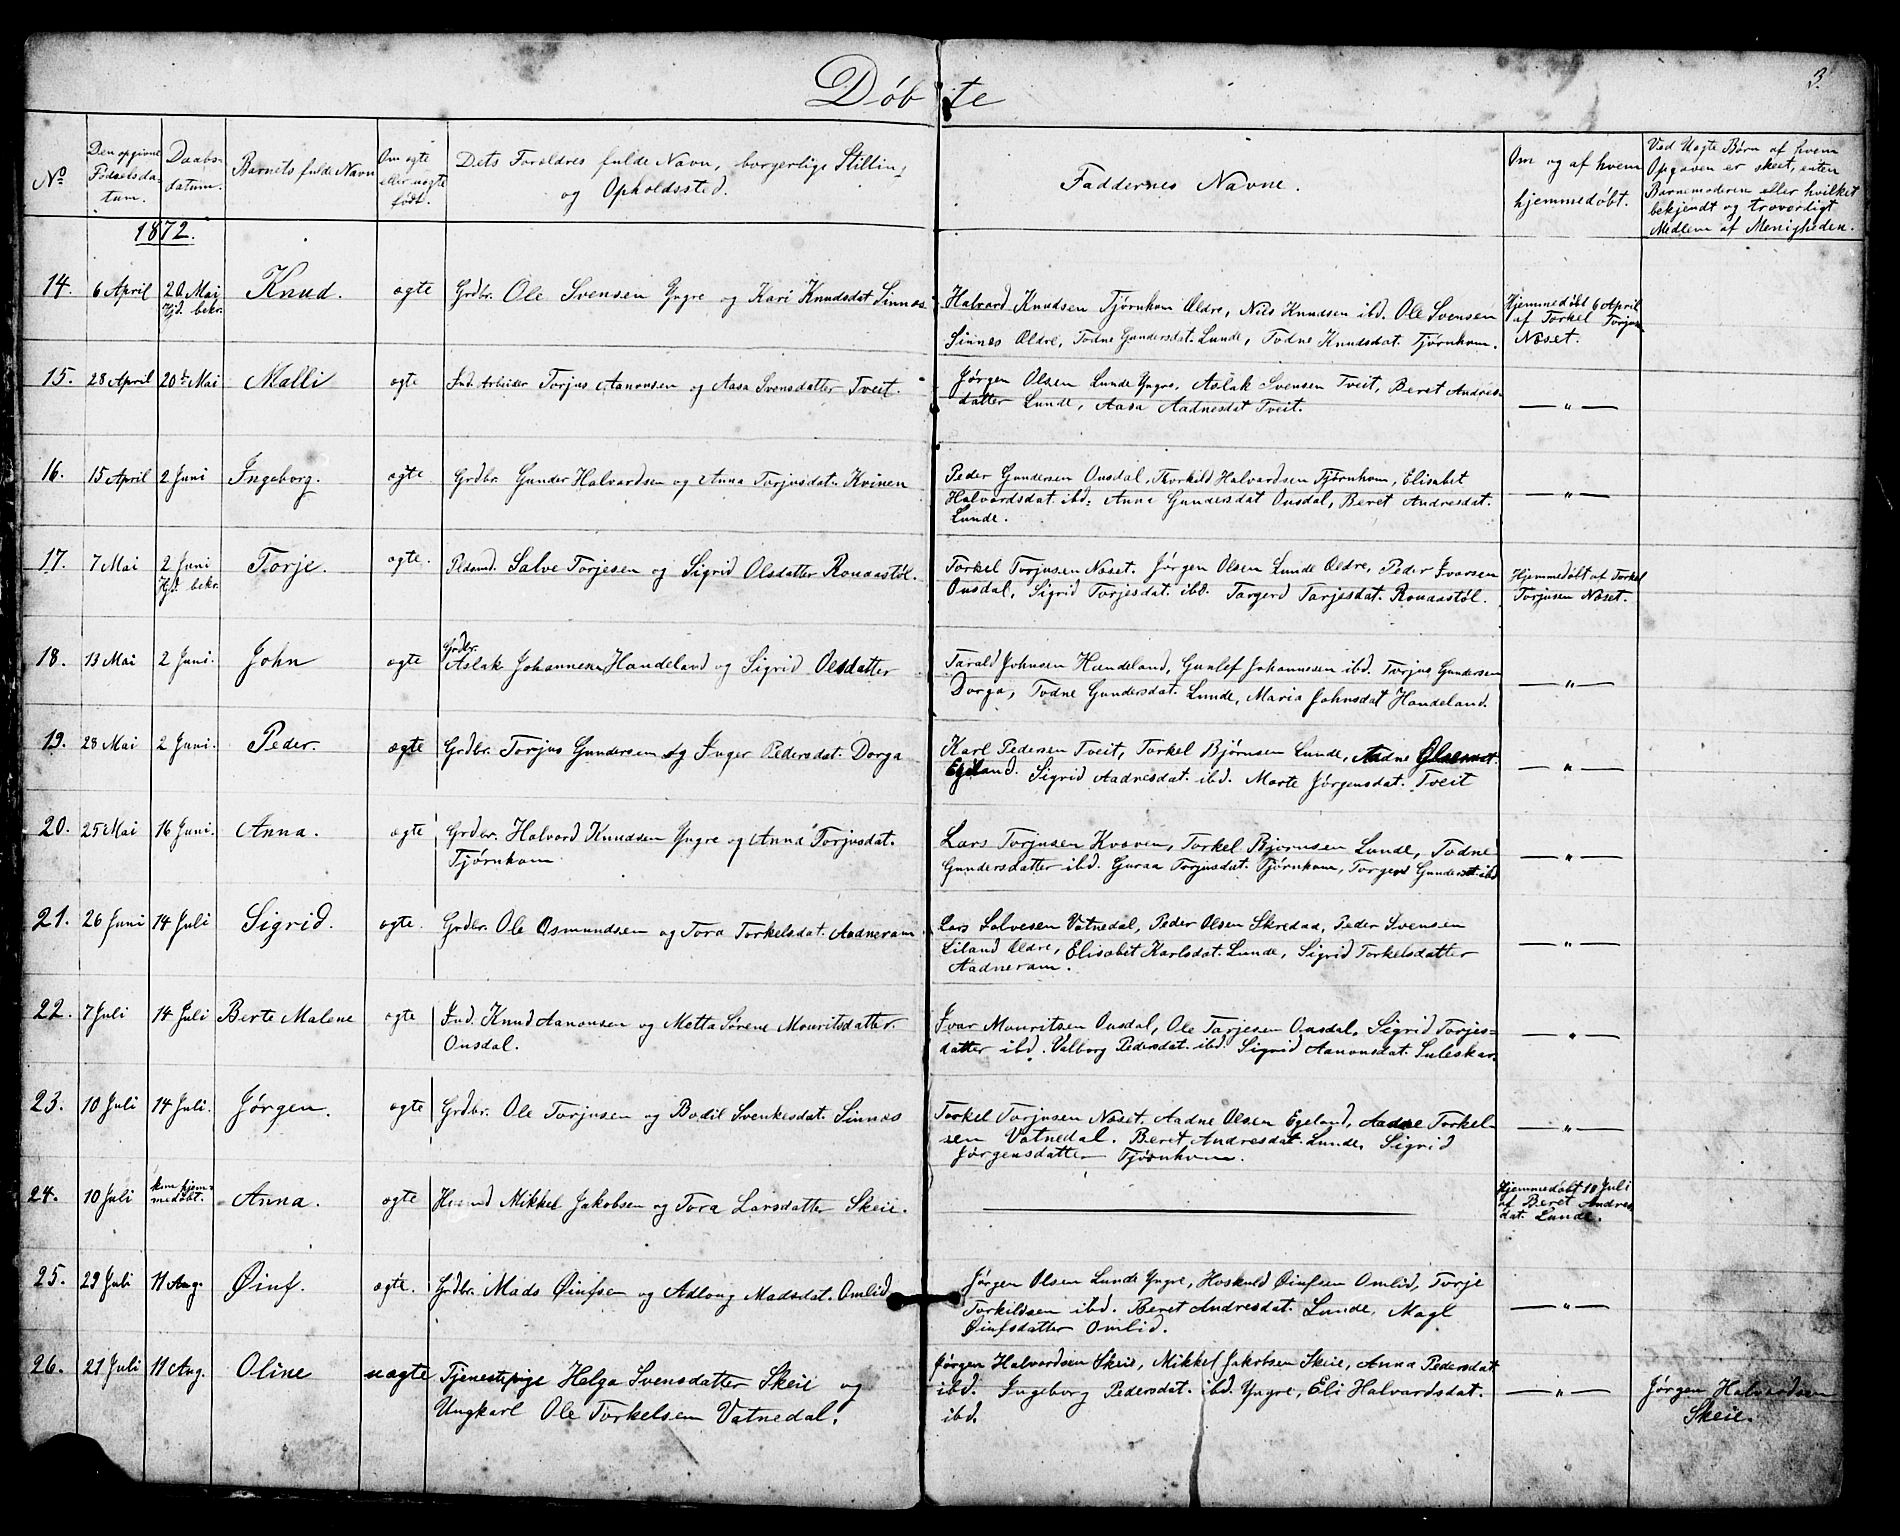 Døbte
3.
No
Den opgivne Fødselsdatum.
Daabsdatum.
Barnets fulde Navn
Om ægte eller uægte født.
Dets Forældres fulde Navn, borgerlige Stilling og Opholdssted.
Faddernes Navne.
Om og af hvem hjemmedøbt.
Ved Uægte Børn af hvem Opgaven er skeet, enten Barnemoderen eller hvilket bekjendt og troværdigt Medlem af Menigheden.
1872.
14. 6 April 20 Mai Hjd. bekr. Knud. ægte Grdbr. Ole Svensen Yngre og Kari Knudsdat Sinnes
Halvard Knudsen Tjørnhom Ældre, Nils Knudsen ibd. Ole Svensen
Sinnes Ældre, Todne Gundersdat. Lunde, Todne Knudsdat. Tjørnhom.
Hjemmedøbt 6 April
af Torkel Torjus
Næset.
15. 28 April 20de Mai Malli ægte Ind. Arbeider Torjus Aanonsen og Aasa Svensdatter Tveit.
Jørgen Olsen Lunde Yngre, Aslak Svensen Tveit, Beret Andres-
datter Lunde, Aasa Aadnesdat Tveit.
— " —
16. 15 April 2 Juni Ingeborg. ægte Grdbr. Gunder Halvardsen og Anna Torjusdat. Kvinen
Peder Gundersen Ousdal, Thorkild Halvardsen Tjørnhom, Elisabet
Halvardsdat. ibd. Anna Gundersdat Ousdal, Beret Andresdat.
Lunde.
— " —
17. 7 Mai 2 Juni Hjd. bekr. Torje. ægte. Pladsmd. Salve Torjesen og Sigrid Olsdatter Ronaastøl.
Torkel Torjusen Næset. Jørgen Olsen Lunde Ældre, Peder Ivarsen
Ousdal, Sigrid Torjesdat. ibd. Targerd Tarjesdat. Ronaastøl.
Hjemmedøbt af Torkel
Torjusen Næset.
18. 13 Mai 2 Juni. John ægte Grdbr. Aslak Johannesen Handeland og Sigrid Olsdatter
Tarald Johnsen Handeland, Gunlef Johannesen ibd. Torjus Gundersen
Dorga, Todne Gundersdat. Lunde, Maria Johnsdat Handeland.
— " —
19. 28 Mai 2 Juni. Peder. ægte Grdbr. Torjus Gundersen og Inger Pedersdat. Dorga
Karl Pedersen Tveit, Torkel Bjørnsen Lunde, Aadne
Egeland. Sigrid Aadnesdat. ibd. Marte Jørgensdat. Tveit
— " —
20. 25 Mai 16 Juni. Anna. ægte Grdbr. Halvard Knudsen Yngre og Anna Torjusdat.
Tjørnhom
Lars Torjusen Kvæven, Torkel Bjørnsen Lunde, Todne
Gundersdatter ibd. Guraa Torjusdat. Tjørnhom, Torgerd Gundersdt. ibd
— " —
21. 26 Juni 14 Juli Sigrid. ægte. Grdbr. Ole Osmundsen og Tora Torkelsdat. Aadneram.
Lars Salvesen Vatnedal, Peder Olsen Skredaa, Peder Svensen
Liland Ældre, Elisabet Karlsdat. Lunde, Sigrid Torkelsdatter
Aadneram.
— " —
22. 7 Juli 14 Juli Berte Malene ægte Ind. Knud Aanonsen og Metta Sørene Mouritsdatter.
Ousdal.
Ivar Mouritsen Ousdal, Ole Tarjesen Ousdal, Sigrid Torjes-
datter ibd. Valborg Pedersdat. ibd. Sigrid Aanonsdat. Suleskar.
— " —
23. 10 Juli 14 Juli. Jørgen. ægte Grdbr. Ole Torjusen og Bodil Svenkesdat. Sinnes
Torkel Torjusen Næset. Aadne Olsen Egeland, Aadne Torkel-
sen Vatnedal. Beret Andresdat. Lunde, Sigrid
Jørgensdatter Tjørnhom.
— " —
24. 10 Juli kun hjemmedøbt. Anna. ægte Husmd Mikkel Jakobsen og Tora Larsdatter Skeie.
Hjemmedøbt 10 Juli
af Beret Andres
dat. Lunde.
25. 29 Juli 11 Aug. Øinf. ægte. Grdbr. Mads Øinfsen og Adlaug Madsdat. Omlid
Jørgen Olsen Lunde Yngre, Hoskuld Øinfsen Omlid, Torje
Torkildsen ibd. Beret Andresdat. Lunde, Magl
Øinfsdatter Omlid.
— " —
26. 21 Juli 11 Aug. Oline uægte Tjenestepige Helga Svensdatter Skeie og
Ungkarl Ole Torkelsen Vatnedal.
Jørgen Halvardsen Skeie, Mikkel Jakobsen Skeie, Anna Pedersdat
ibd. Ingeborg Pedersdat. ibd. Yngre, Eli Halvardsdat.
ibd.
— " —
Jørgen Halvardsen
Skeie.